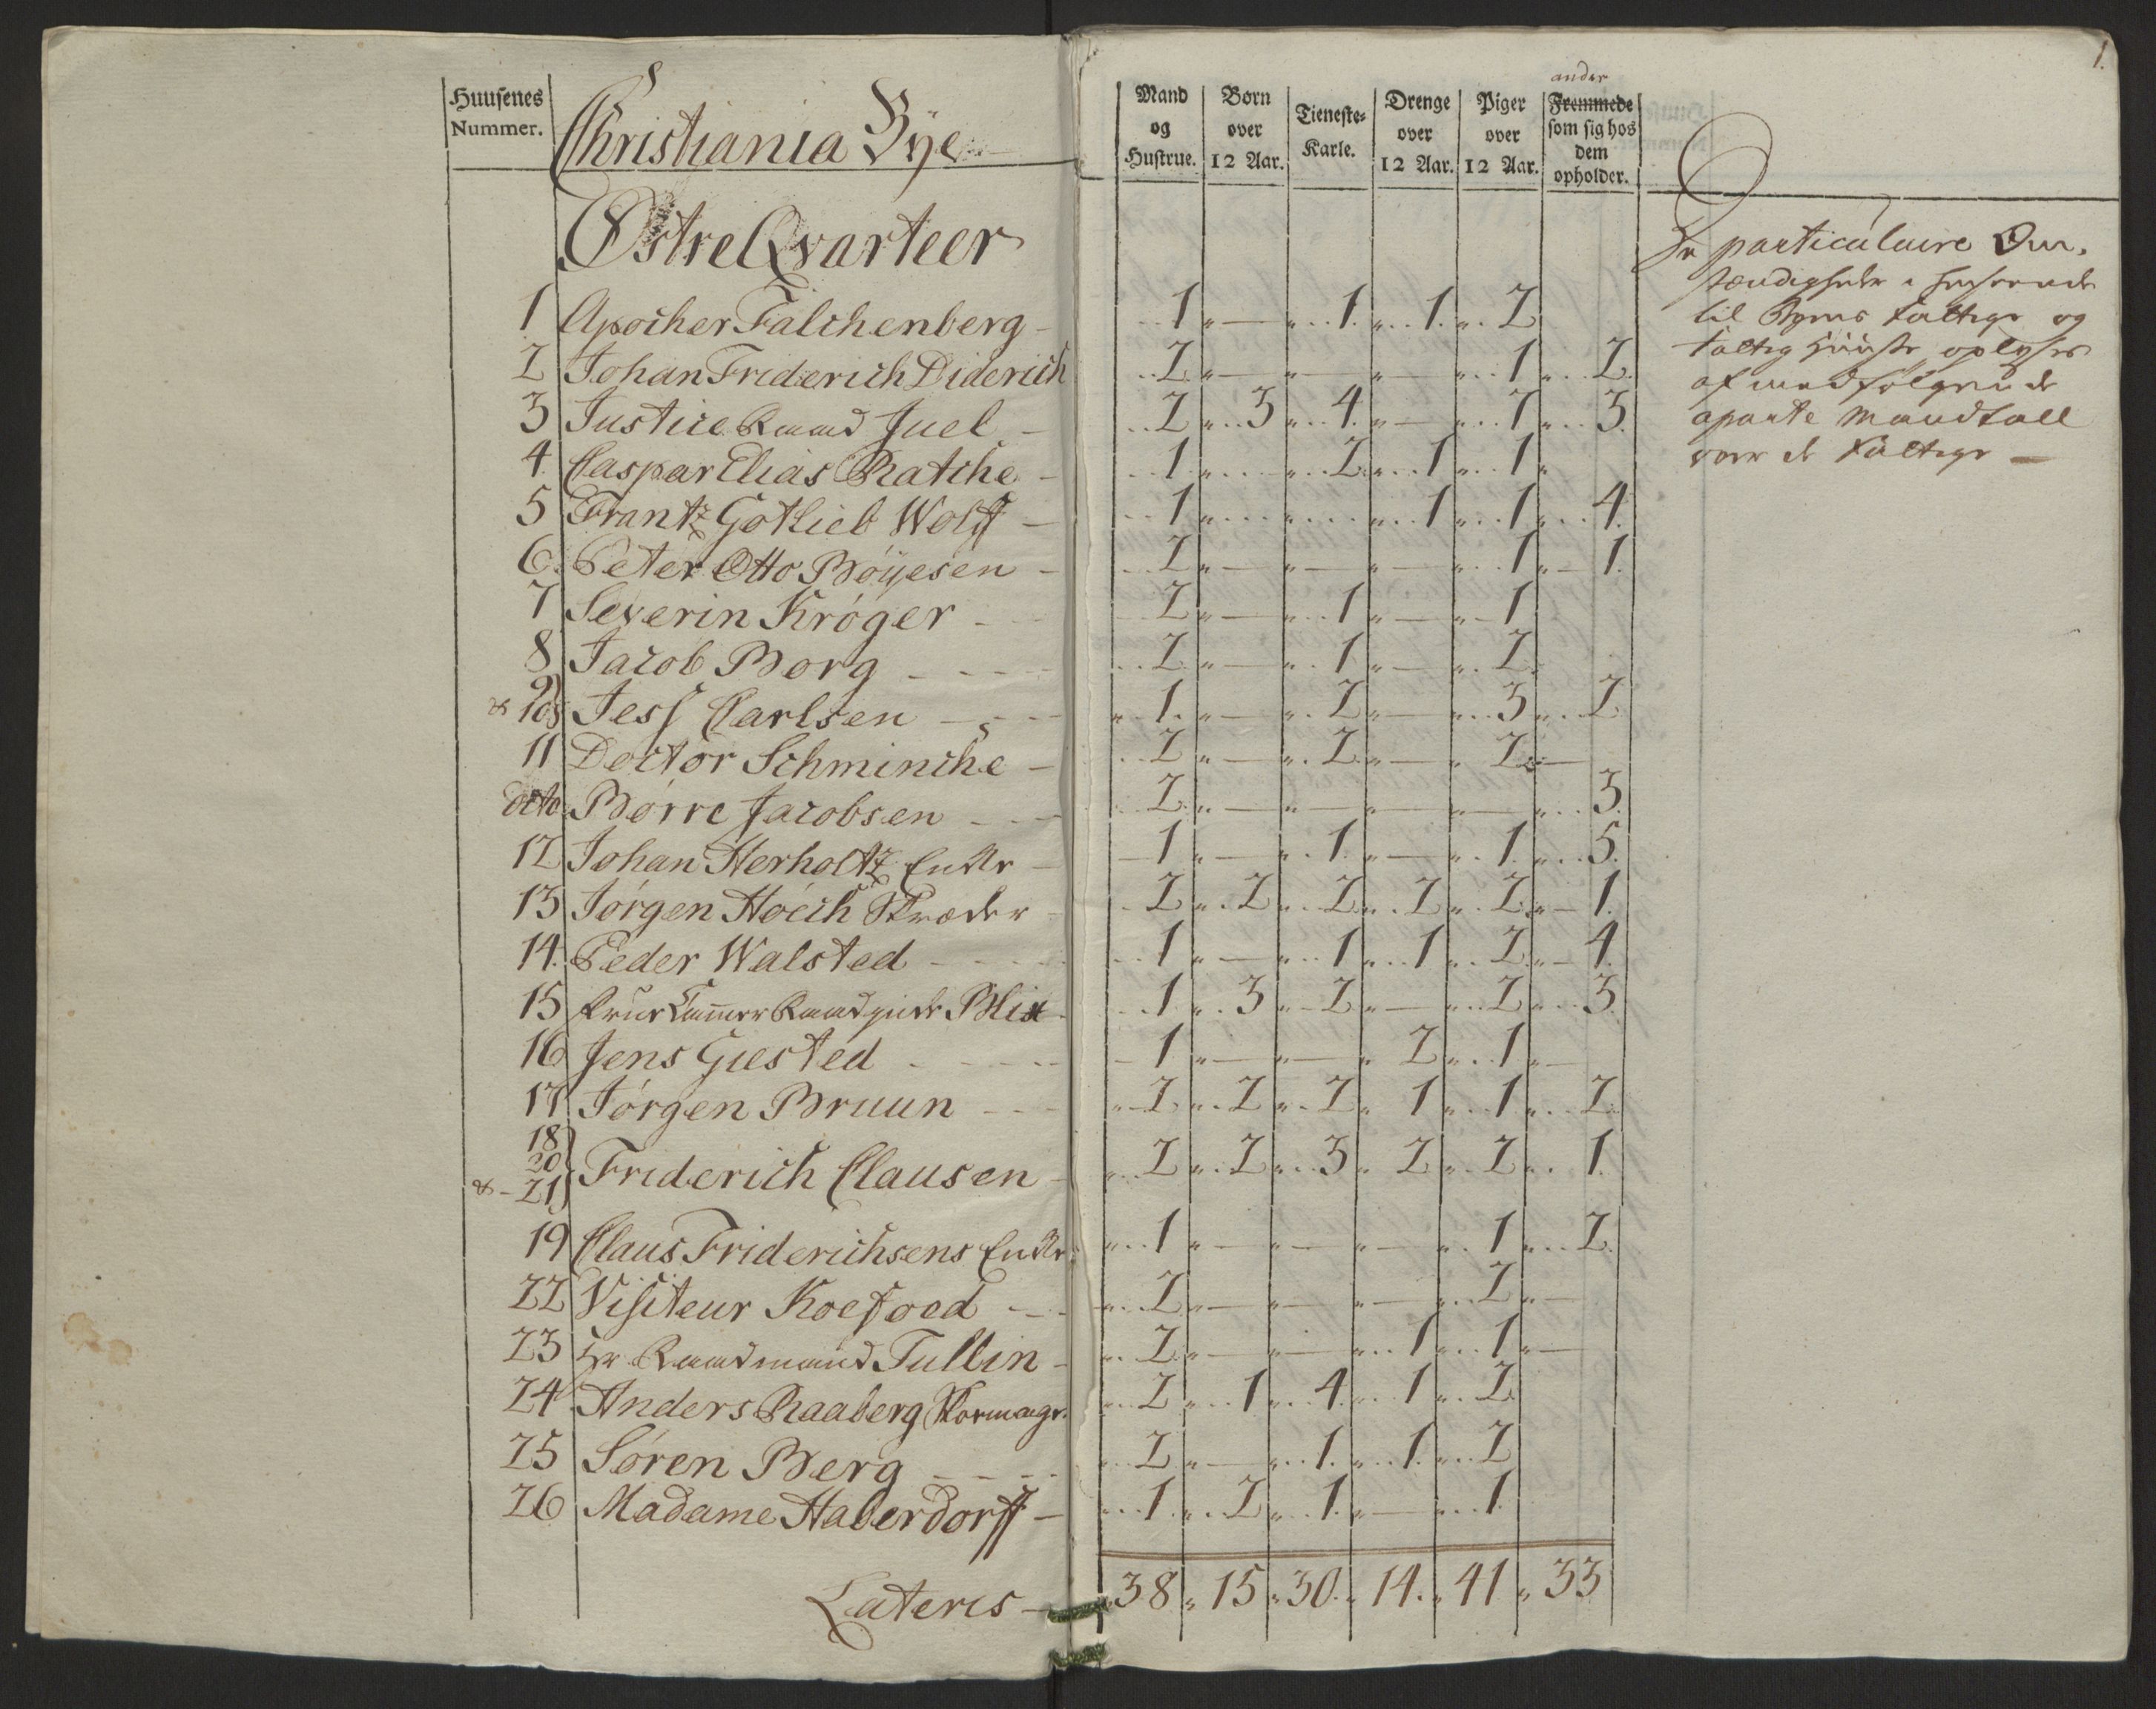 1.
Huusenes
Nummer.
Christiania Bye
Mand og Hustrue. Børn over 12 Aar. Tieneste-Karle. Drenge over 12 Aar. Piger over 12 Aar. ander Fremmede som sig hos dem opholder.
Østre Qvarteer
1 Apother Falchenberg - 1 " — " 1. " 1. " 2
2 Johan Friderich Diderich 2 " — " — " — " 1 " 2.
3 Justice Raad Juel - 2 " 3 " 4. " — " 1 " 3.
4. Caspar Elias Ratche - 1 " 2 " 1 " 1 "
5 Frantz Gotlieb Wolff - 1 " " " 1 " 1 " 4.
6. Peter Otto Böÿesen - 2 " — " — " — " 1 " 1.
7 Severin Krøger - 2 " — " 1 " — " 1
8 Jacob Borg - 2 " — " 1 " — " 2.
9
& 10 Jess Carlsen - " 1. " — " 2 " — " 3 " 2
11 Doctor Schminche - 2 " — " 2 " — " 2 " —
dito Børre Jacobsen - 2 " — " — " — " — " 3.
12 Johan Herholtz Enke - 1 " — " 1. " — " 1. " 5.
13 Jørgen Höich Skræder - 2 " 2 " 2 " 2 " 2 " 1.
14. Peder Walsted - 1 " — " 1 " 1 " 2 " 4.
15 Frue Cammer Raadginde Blix - 1 " 3 " 2 " — " 2 " 3
16 Jens Giested - 1 " — " — " 2 " 1 " —
17 Jørgen Bruun - 2 " 2 " 2 " 1 " 1 " 2
18
20
& - 21 Friderich Clausen - 2 " 2 " 3 " 2 " 2 " 1.
19 Claus Friderichsens Enke " 1 " — " — " — " 1 " 2.
22 Visiteur Koefoed - 2 " — " — " — " 2 " —
23 Hr Raadmand Tullin - 2 " — " — " 1 " 1 " —
24 Anders Raaberg Skomagr. 2 " 1 " 4. " 1 " 2
25 Søren Berg - 2 " — " 1. " 1. " 2
26 Madame Haberdorff - 1 " 2 " 1. " — " 1.
Lateris - 38 " 15 " 30. " 14. " 41 " 33
De particulaire Om-
stændigheder i henseende
til Byens fattige og
fattig Huuse oplyses
af medfølgende
aparte Mandtall
over de fattige —